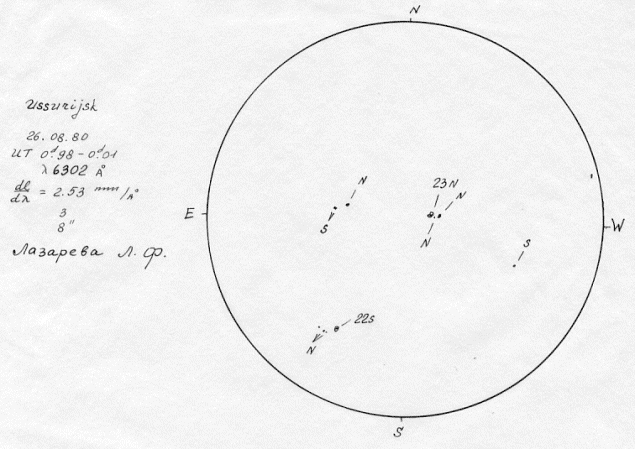 Ussurijsk
26.08.80
UT 0ᵈ.98 - 0ᵈ.01
λ 6302 Å
dl/dλ = 2.53 mm/Å
3
8"
Лазарева Л. Ф.
N
N
23 N
N
S
N
E
W
S
22S
N
S